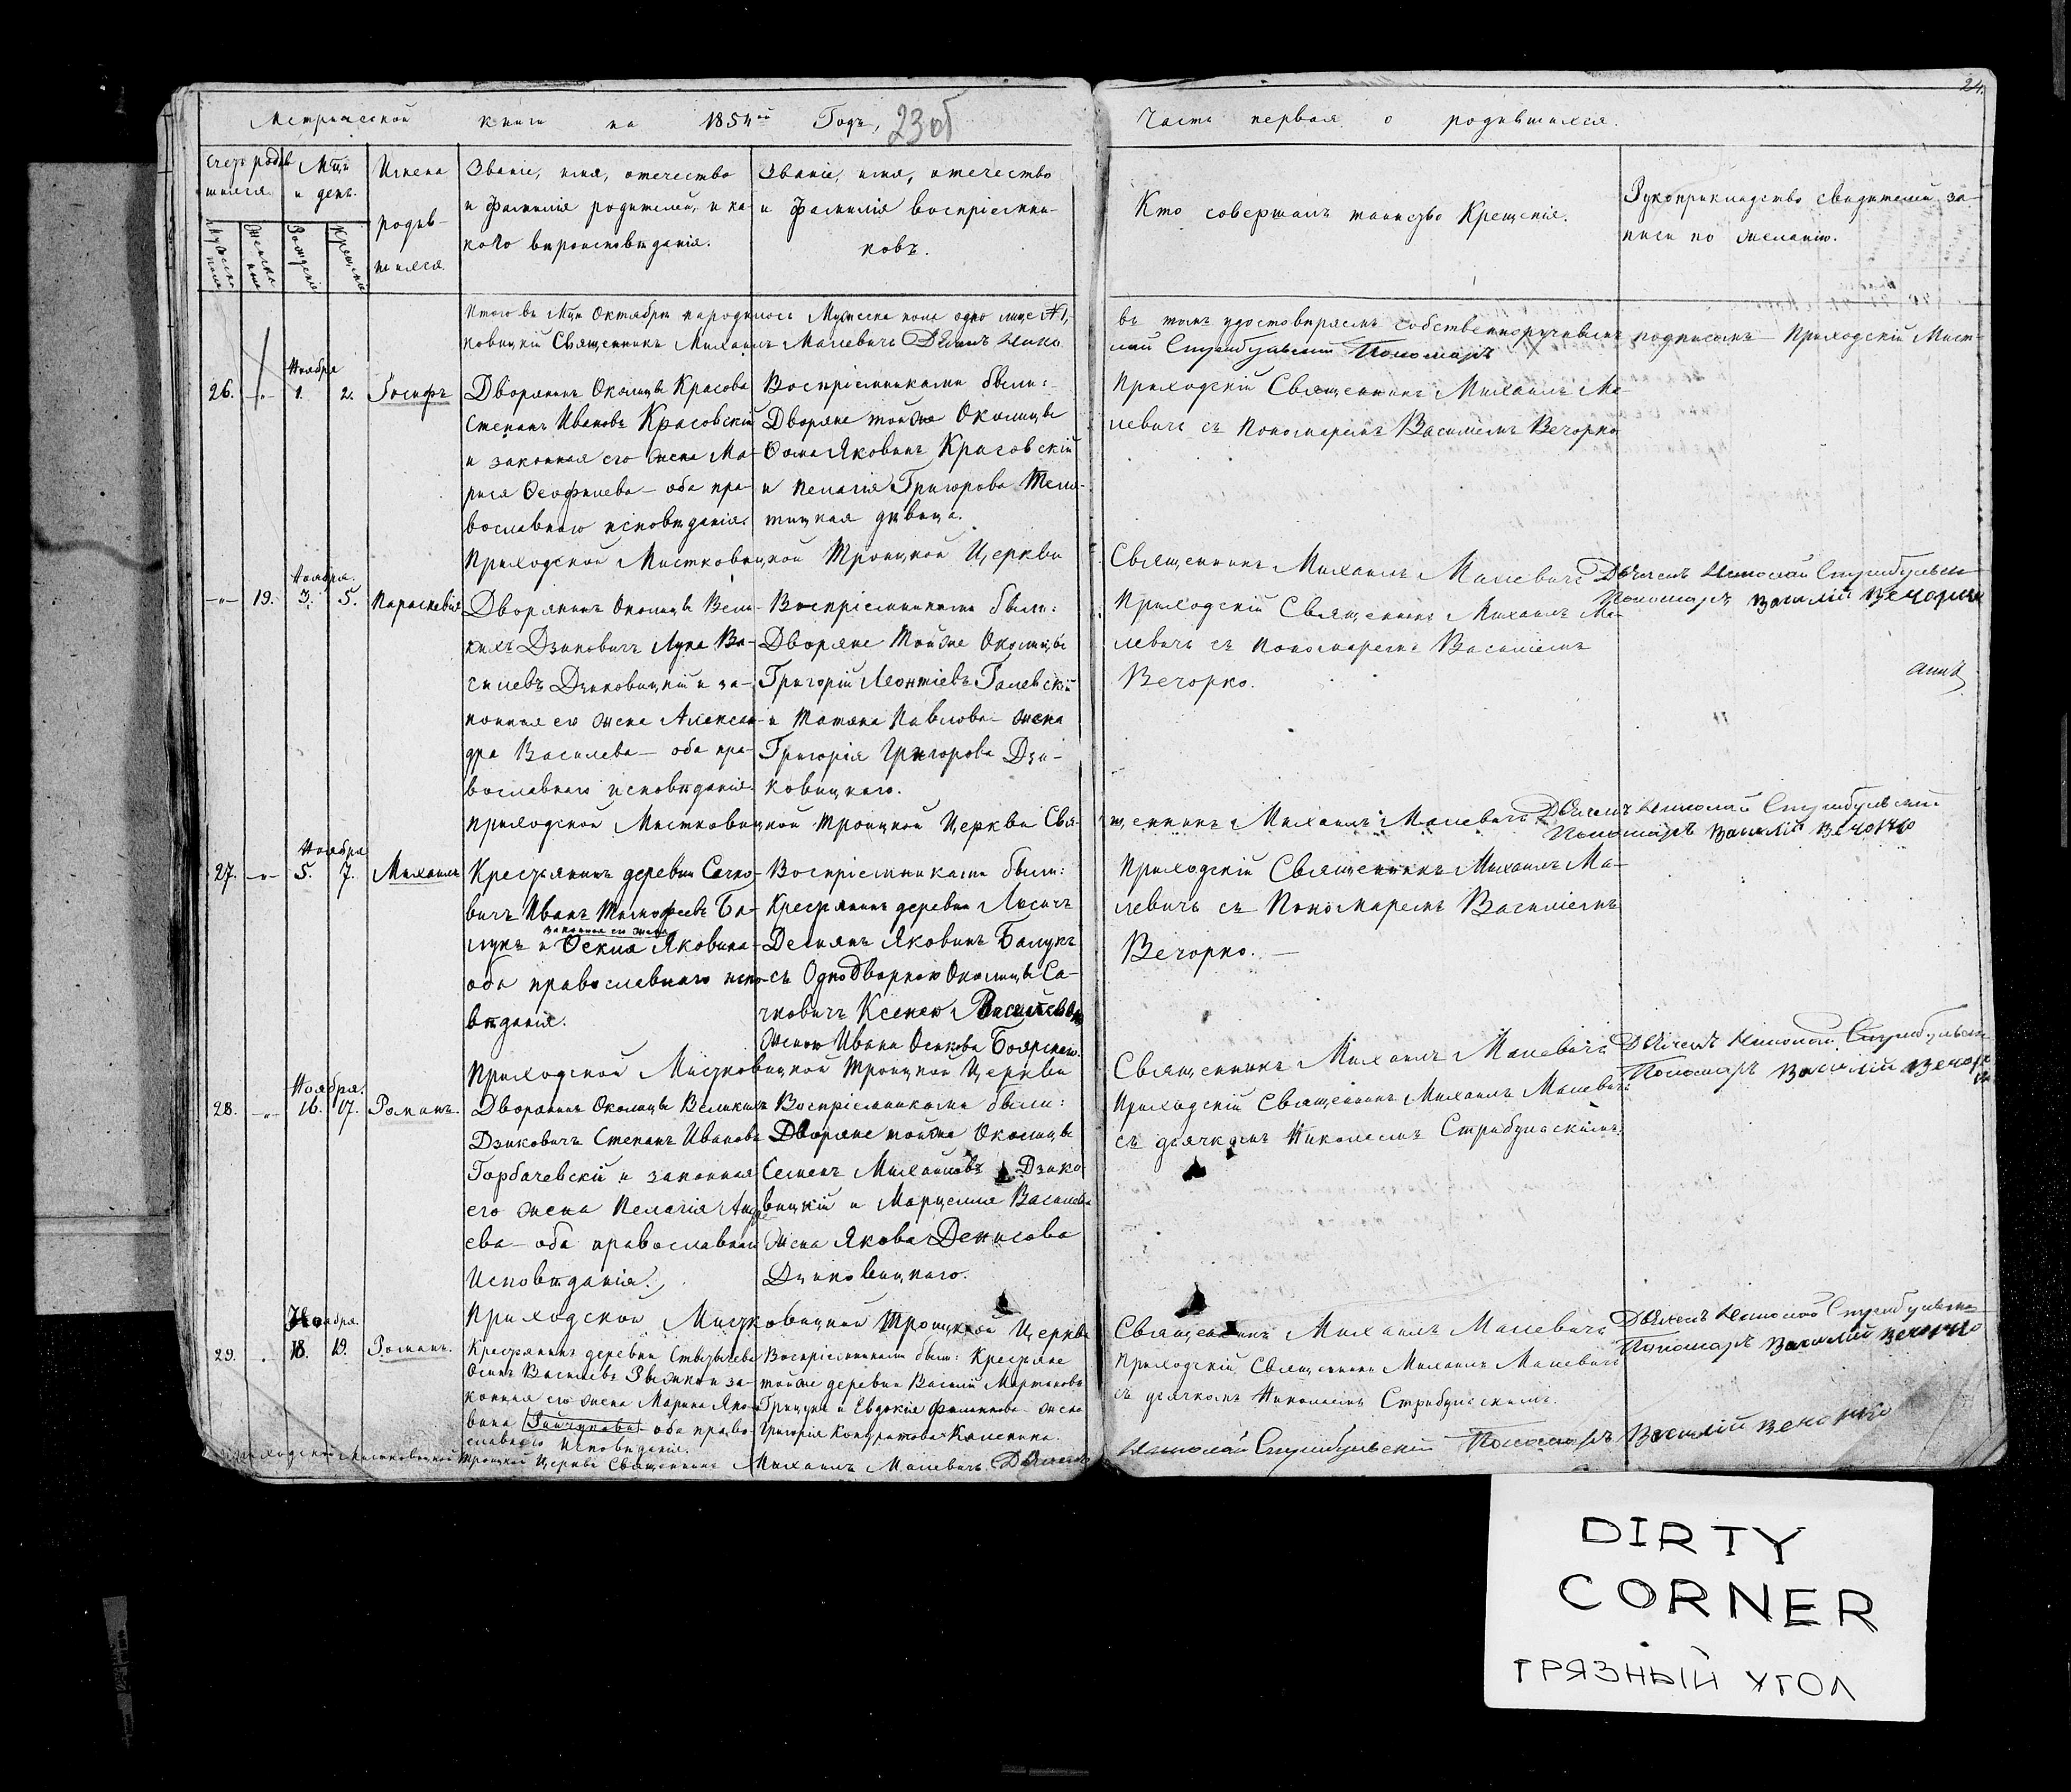 Метрической книги на 1854й Годъ,
23об
Часть первая о родившихся.
24.
Счетъ родив
шихся
Мужеска
пола
Женска
пола
Мцъ
и день.
Рожденія
Крещенія
Имена
родив-
шихся.
Званіе, имя, отечество
и фамилія родителей, и ка-
кого вѣроисповѣданія.
Званіе, имя, отечество
и фамилія воспріемни-
ковъ.
Кто совершалъ таинство Крещенія.
Рукоприкладство свидетелей за-
писи по желанію.
Итого въ Мцѣ Октябрѣ народилось Мужеска пола одно лице №1,
въ томъ удостовѣряемъ собственноручнымъ подписомъ Приходскій Мист-
ковицкій Священникъ Михаилъ Малевичъ Дьячекъ Нико
лай Стрибульскій Пономаръ
Ноября
26. -"- 1. 2. Іосифъ
Дворянинъ Околицы Красова
Степанъ Ивановъ Красовскій
и законная его жена Ма-
рися Ѳеофилева - оба пра-
вославнаго исповѣданія.
Воспріемниками были:
Дворяне тойже Околицы
Ѳома Яковинъ Красовскій
и Пелагія Григорова Теле-
тицкая дѣвица.
Приходскій Священникъ Михаилъ Ма-
левичъ съ Пономаремъ Василіемъ Вечорко
Приходской Мистковицкой Троицкой Церкви
Священникъ Михаилъ Малевичъ Дьячекъ Николай Стрибульскі
Пономаръ Василій Вечорко
Ноября.
-"- 19. 3. 5. Параскевія
Дворянинъ Околицы Вели-
кихъ Дзиковичъ Лука Ва-
силевъ Дзиковицкій и за-
конная его жена Алексан-
дра Василева - оба пра-
вославнаго исповѣданія.
Воспріемниками были:
Дворяне Тойже Околицы
Григорій Леонтіевъ Галевскій
и Татяна Павлова - жена
Григорія Григорова Дзи-
ковицкаго.
Приходскій Священникъ Михаилъ Ма-
левичъ съ Пономаремъ Василіемъ
Вечорко.
Приходской Мистковицкой Троицкой Церкви Свя-
щенникъ Михаилъ Малевичъ Дьячекъ Николай Стрибульскій
Пономаръ Василій Вечорко
Ноября
27. -"- 5. 7. Михаилъ
Крестьянинъ деревни Сачко-
вичъ Иванъ Тимофеевъ Ба-
законная его жена
лукъ и Ѳекла Яковина-
оба православнаго испо-
вѣданія.
Воспріемниками были:
Крестянинъ деревни Лисичъ
Демянъ Яковинъ Балукъ
съ Однодворкою Околицы Са-
чковичъ Ксенею Василевою
женою Ивана Осипова Боярскаго.
Приходскій Священникъ Михаилъ Ма-
левичъ съ Пономаремъ Василіемъ
Вечорко. -
Приходской Мистковицкой Троицкой Церкви
Священникъ Михаилъ Малевичъ Дьячекъ Николай Стрибульскі
Пономаръ Василій Вечорко
Ноября.
28. -"- 16. 17. Романъ.
Дворянинъ Околицы Великихъ
Дзиковичъ Степанъ Ивановъ
Горбачевскій и законная
его жена Пелагія Андре
ева - оба православнаго
Исповѣданія.
Воспріемниками были:
Дворяне тойже Околицы
Семенъ Михаиловъ Дзико
вицкій и Марцеля Василева
жена Якова Денисова
Дзиковицкаго.
Приходскій Священникъ Михаилъ Малевичъ
съ дьячкомъ Николаемъ Стрибульскимъ.
Приходской Мистковицкой Троицкой Церкви
Священникъ Михаилъ Малевичъ Дьячекъ Николай Стрибульскі
Пономаръ Василій Вечорко
Ноября.
29. 18. 19. Романъ.
Крестьянинъ деревни
Осипъ Василевъ Рыжко и за-
конная его жена Марина Яко
вина оба право
славнаго Исповѣданія.
Воспріемниками были: Крестяне
тойже деревни Василій Мартиновъ
Грицукъ и Евдокія Филипова жена
Григорія Кондратова Каленика.
Приходскій Священникъ Михаилъ Малевичъ
съ дьячкомъ Николаемъ Стрибульскимъ.
Приходской Мистковицкой Троицкой Церкви Священникъ Михаилъ Малевичъ Дьячекъ
Николай Стрибульскій Пономаръ Василій Вечорко
DIRTY
CORNER
ГРЯЗНЫЙ УГОЛ